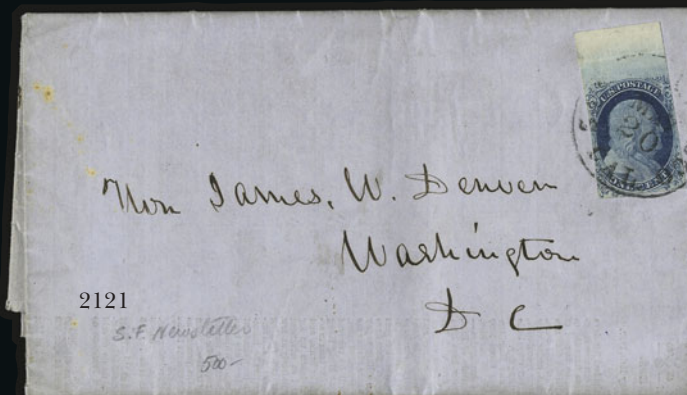 U.S. POSTAGE
20
Hon James. W. Denver
Washington
D C
2121
S.F. Newsletter
500-